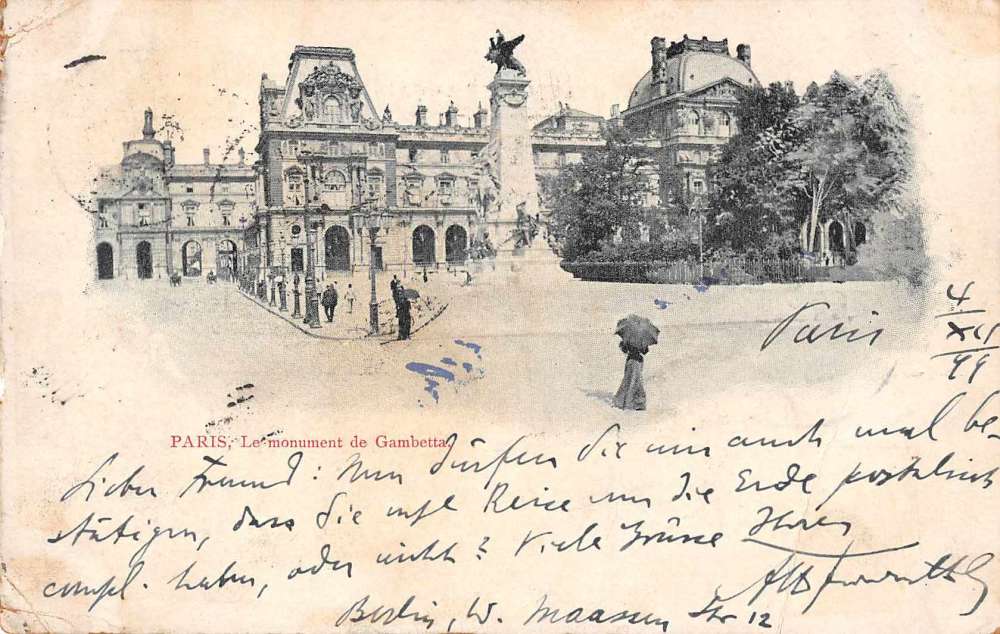 Paris
4
XII
99
PARIS, Le monument de Gambetta.
Lieber Freund: Nun dürfen Sie mir auch mal be-
stätigen, dass Sie Reise um die Erde postalisch
compl. haben, oder nicht? Viele Grüsse Ihres
Berlin, W. Maassen Str 12